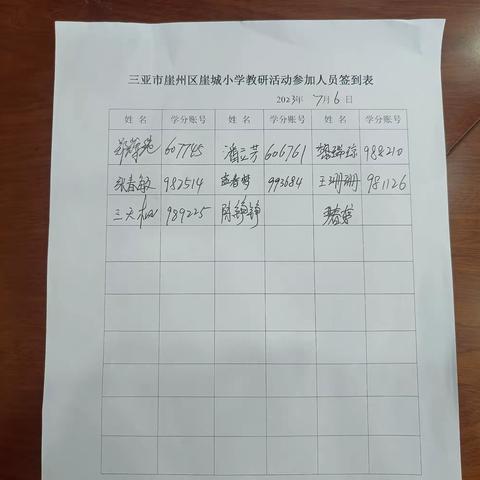 三亚市崖州区崖城小学教研活动参加人员签到表
2023年 7月6日
姓 名 学分账号 姓 名 学分账号 姓 名 学分账号
607745 潘立芳 606761 988210
张春敏 982514 993684 王珊珊 981126
989225 陈铮铮